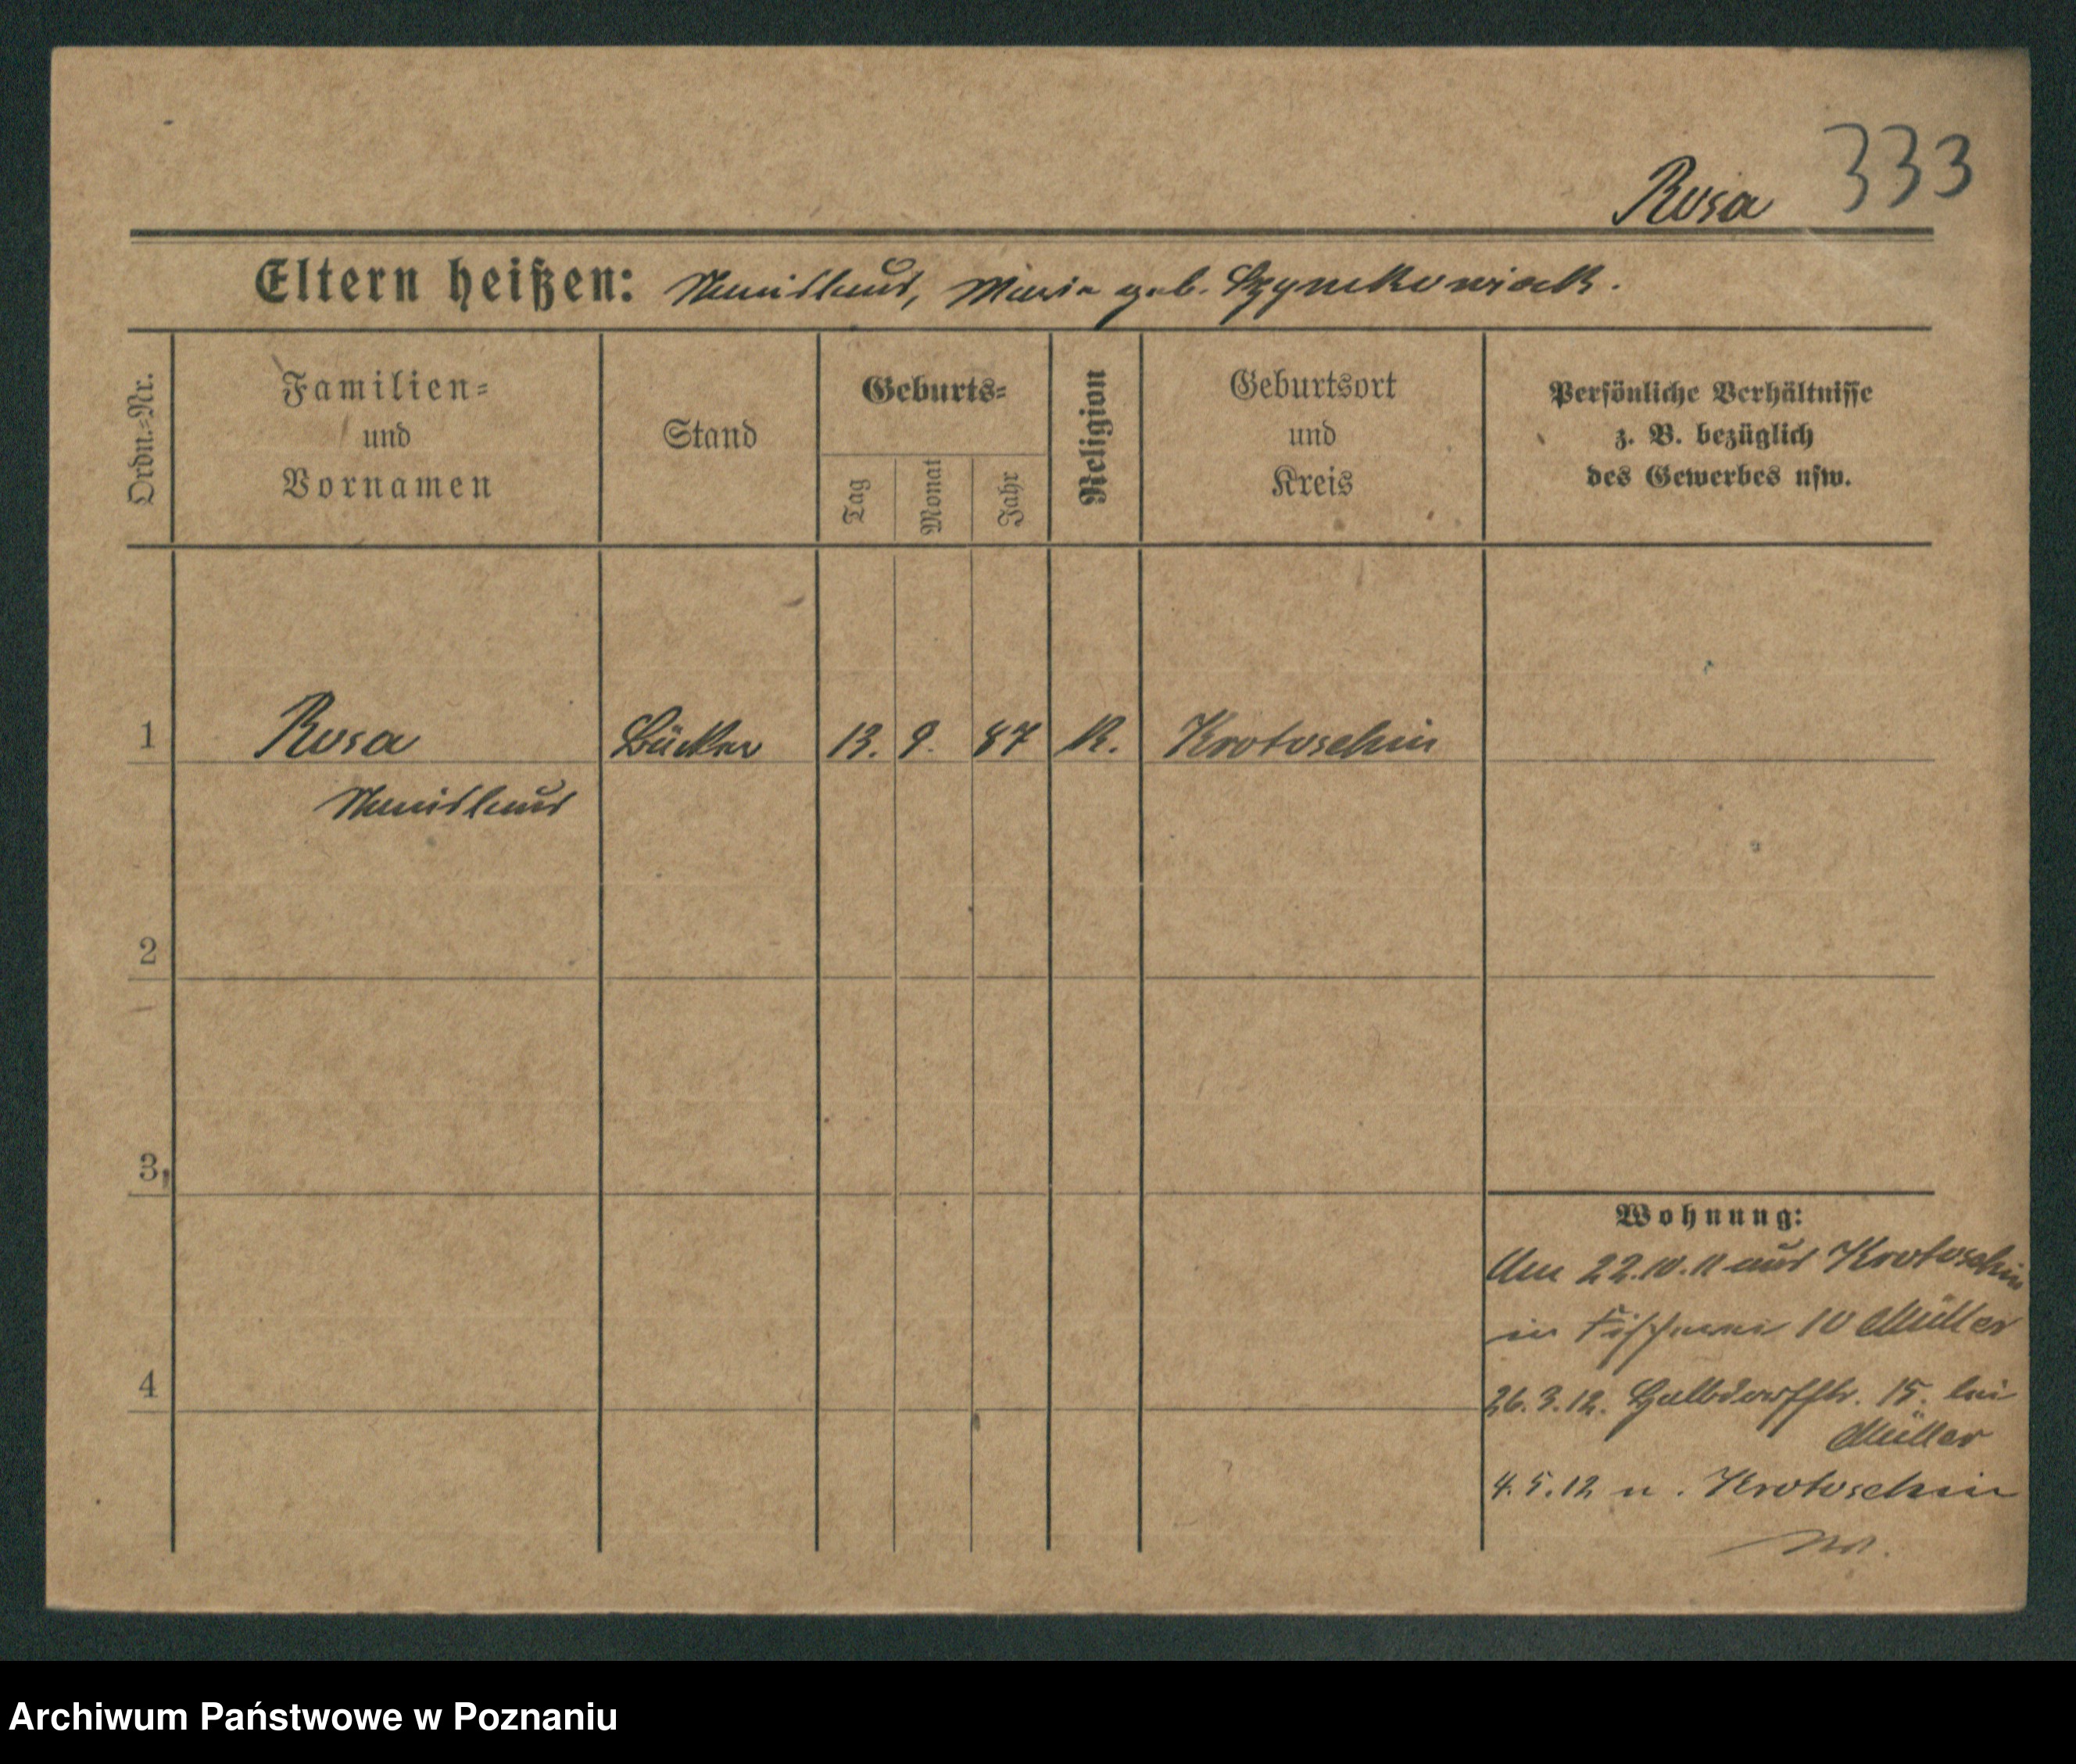 333
Rosa
Eltern heißen: Stanislaus, Maria geb. Szymkowiak.
Ordn.-Nr.
Familien-
und
Vornamen
Stand
Geburts-
Tag
Monat
Jahr
Religion
Geburtsort
und
Kreis
Persönliche Verhältnisse
z. B. bezüglich
des Gewerbes usw.
1 Rosa Bäcker 13. 9. 87 K. Krotoschin
Stanislaus
2
3
Wohnung:
Am 22.10.11 aus Krotoschin
in Fischerei 10 Müller
4
26.3.12. Halbdorfstr. 15. bei
Müller
4.5.12 n. Krotoschin
Archiwum Państwowe w Poznaniu